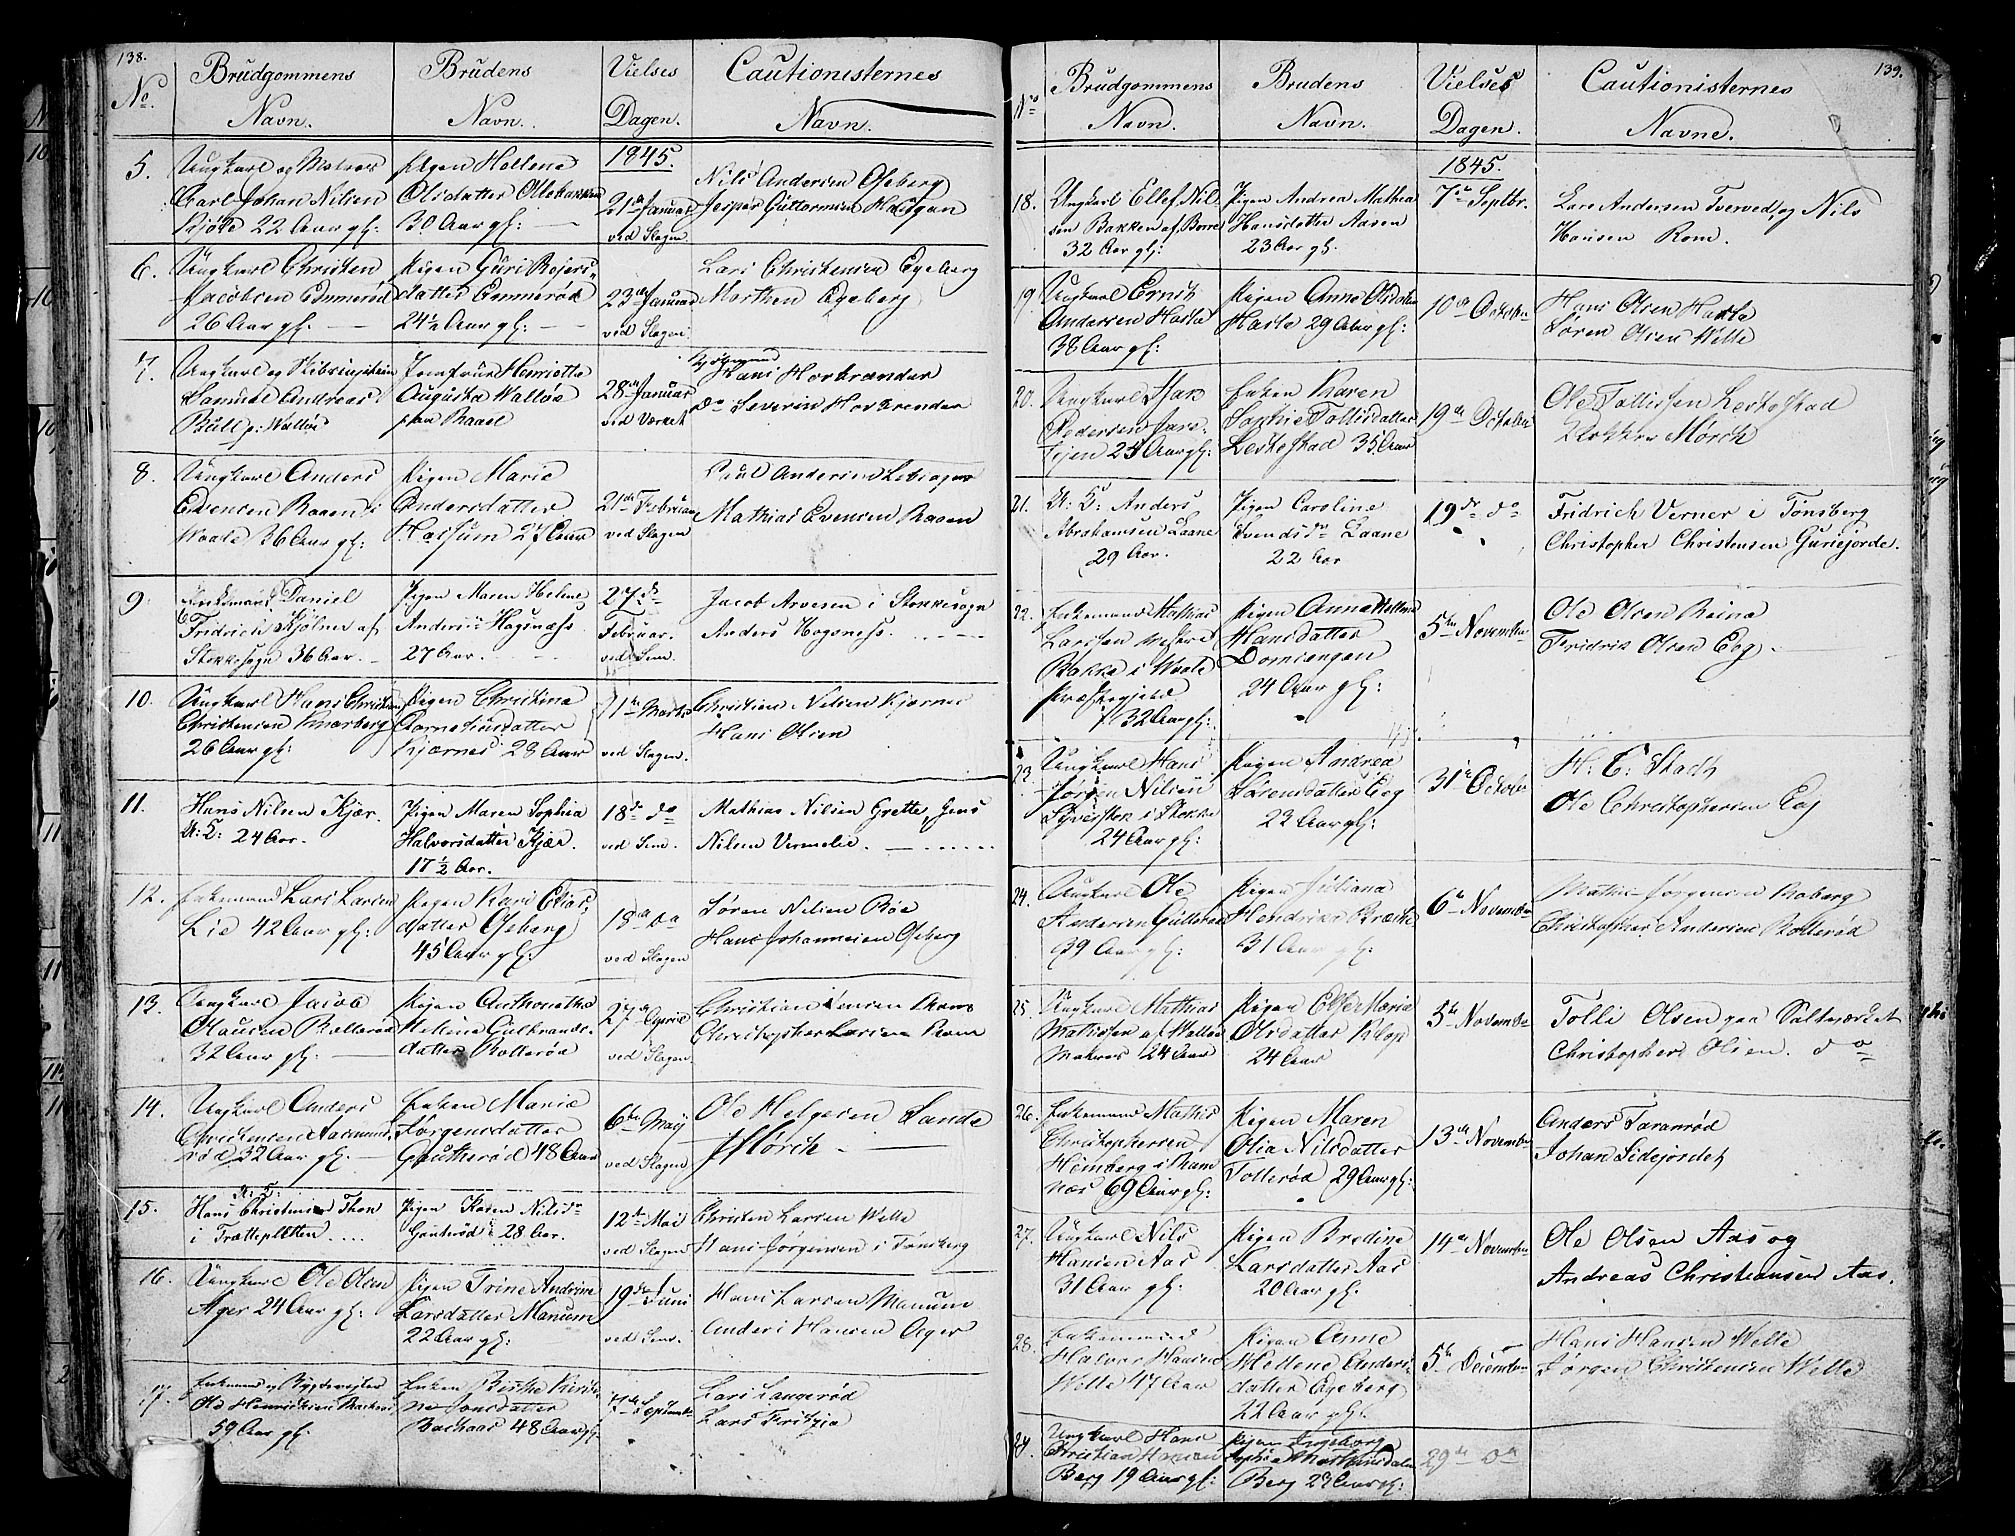 138.
No.
Brudgommens
Navn.
Brudens
Navn.
Vielses
Dagen.
Cautionisternes
Navn.
1845.
5.
Ungkarl og Matros
Carl Johan Nilsen
22 Aar gl:
Pigen Hellene
Olsdatter
30 Aar gl:
21de Januar
ved Slagen
Nils Andersen Oseberg
Jesper Guttormsen
6.
Ungkarl Christen
Jacobsen Emmerød
26 Aar gl.
Pigen Guri
datter Emmerød
24½ Aar gl:
23de Januar
ved Slagen
Lars Christensen Egeberg
Morthen Egeberg
7.
Ungkarl og
Samuel Andreas
Jomfrue Henriette
Augusta Walløe
28de Januar
ved Værket
Hans
do Severin
8.
Ungkarl Anders
Evensen Raaen i
Waale 36 Aar gl:
Pigen Marie
Andersdatter
27 Aar
21de Februar
ved Slagen
Poul Andersen
Mathias Evensen Raaen
9.
Daniel
Fridrich Kjølner af
Stokkesogn 36 Aar.
Pigen Maren Helene
Anders: Hagsnæss
27 Aar.
27de
Februar.
ved Sem.
Jacob Arvesen i Stokkesogn
Anders Hogsness.
10.
Ungkarl Hans Christian
Christensen
26 Aar gl:
Pigen Christina
datter
Kjærnes 28 Aar
ved Slagen.
Christian Nilsen Kjærnes
Hans Olsen
11.
Hans Nilsen Kjær.
U: K: 24 Aar.
Pigen Maren Sophia
Halvorsdatter Kjær.
17½ Aar.
18de do
ved Sem.
Mathias Nilsen Grette, Jens
Nilsen Vermelie.
12.
Enkemand Lars Larsen
Lie 42 Aar gl:
Pigen Kari Elias
datter Oseberg
45 Aar gl:
18de do
ved Slagen
Søren Nilsen Røe
Hans Johannesen Oseberg
13.
Ungkarl Jacob
Olausen Rollerød
32 Aar gl:
Pigen
Helene Gulbrands
datter Rollerød
27de April
ved Slagen
Christian Jensen
Christopher Larsen Rom
14.
Ungkarl Anders
Christensen
rød 32 Aar gl.
Enken Marie
Jørgensdatter
Gauterød 48 Aar
6te Maij
ved Slagen
Ole Helgesen Sande
Mørch
15.
U: K:
Hans Christensen Thon
i Trættepletten
Pigen Karen Nilsdr
Gauterød 28 Aar.
12te Mai
ved Slagen
Christen Larsen Welle
Hans Jørgensen i Tønsberg
16.
Ungkarl Ole Olsen
Ager 24 Aar gl:
Pigen Trine Andrine
Larsdatter Manum
22 Aar gl:
19de Juni
ved Sem.
Hans Larsen Manum
Anders Hansen Ager
17.
Enkemand og
Ole Henrichsen
59 Aar gl.
Enken
Jonsdatter
Backaas 48 Aar gl.
Septembr
Lars Langerød
Lars
139.
No
Brudgommens
Navn.
Brudens
Navn.
Vielses
Dagen.
Cautionisternes
Navne.
1845.
18.
Ungkarl Ellef Nil
sen Bakken af Borre
32 Aar gl:
Pigen Andrea Mathea
Hansdatter Aasen
23 Aar gl.
7de Septbr.
Lars Andersen Tverved, og Nils
Hansen Rom.
19.
Ungkarl Ernst
Andersen Hasle
38 Aar gl:
Pigen Anne Olsdatter
Hasle 29 Aar gl:
10de October
Hans Olsen Hasle
Søren Olsen Welle
20.
Ungkarl
Pedersen
25 Aar gl:
Enken Karen
Sophie Tollisdatter
35 Aar
19de October
Ole Tollefsen
Klokker Mørch
21.
U: K: Anders
Abrahamsen Laane
29 Aar.
Pigen Caroline
Svendsdr Laane
22 Aar
19de do
Fridrich Verner i Tønsberg
Christopher Christensen Guriejorde.
22.
Enkemand Mathias
Larssen
Bakke i Waale
Præstegjeld
32 Aar gl:
Pigen Anna Hellene
Hansdatter
Domsengen
24 Aar gl:
5te November
Ole Olsen Reine
Fridrik Olsen Eeg
23.
Ungkarl Hans
Jørgen Nilsen
i Stokke
24 Aar gl:
Pigen Andrea
Sørensdatter Eeg
23 Aar gl:
31te October
H: C: Stach
Ole Christophersen Eeg
24.
Ungkarl Ole
Andersen Gullerød
39 Aar gl:
Pigen Juliana
Hendriks
31 Aar gl.
6te November
Mathis Jørgensen Roberg
Christopher Andersen Rollerød
25.
Ungkarl Mathias
Mathisen af Walløe
Matros 24 Aar
Pigen Else Maria
Olsdatter Klop
24 Aar
5te November
Tolli Olsen paa Saltværket
Christopher Olsen. do
26.
Enkemand Mathis
Christophersen
Himberg i Ram
næs 69 Aar gl:
Pigen Maren
Olia Nilsdatter
Tollerød 29 Aar gl:
13de November
Anders Taranrød
Johan Sidejordet
27.
Ungkarl Nils
Hansen Aas
31 Aar gl:
Pigen Bredine
Larsdatter Aas
20 Aar gl.
14de November
Ole Olsen Aas og
Andreas Christiansen Aas.
28.
Enkemand
Halvor Hansen
Welle 47 Aar
Pigen Anne
Hellene Anders
datter Egeberg
22 Aar gl:
5te December
Hans Hansen Welle
Jørgen Christensen Welle
29.
Ungkarl Hans
Christian Hansen
Berg 19 Aar gl:
Pigen Ingeborg
Sophie
Berg 29 Aar gl:
29de do